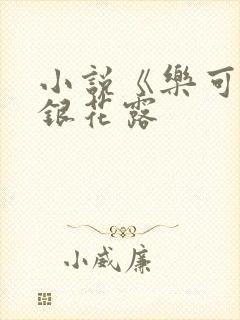 小說《樂可
銀花露
小威廉